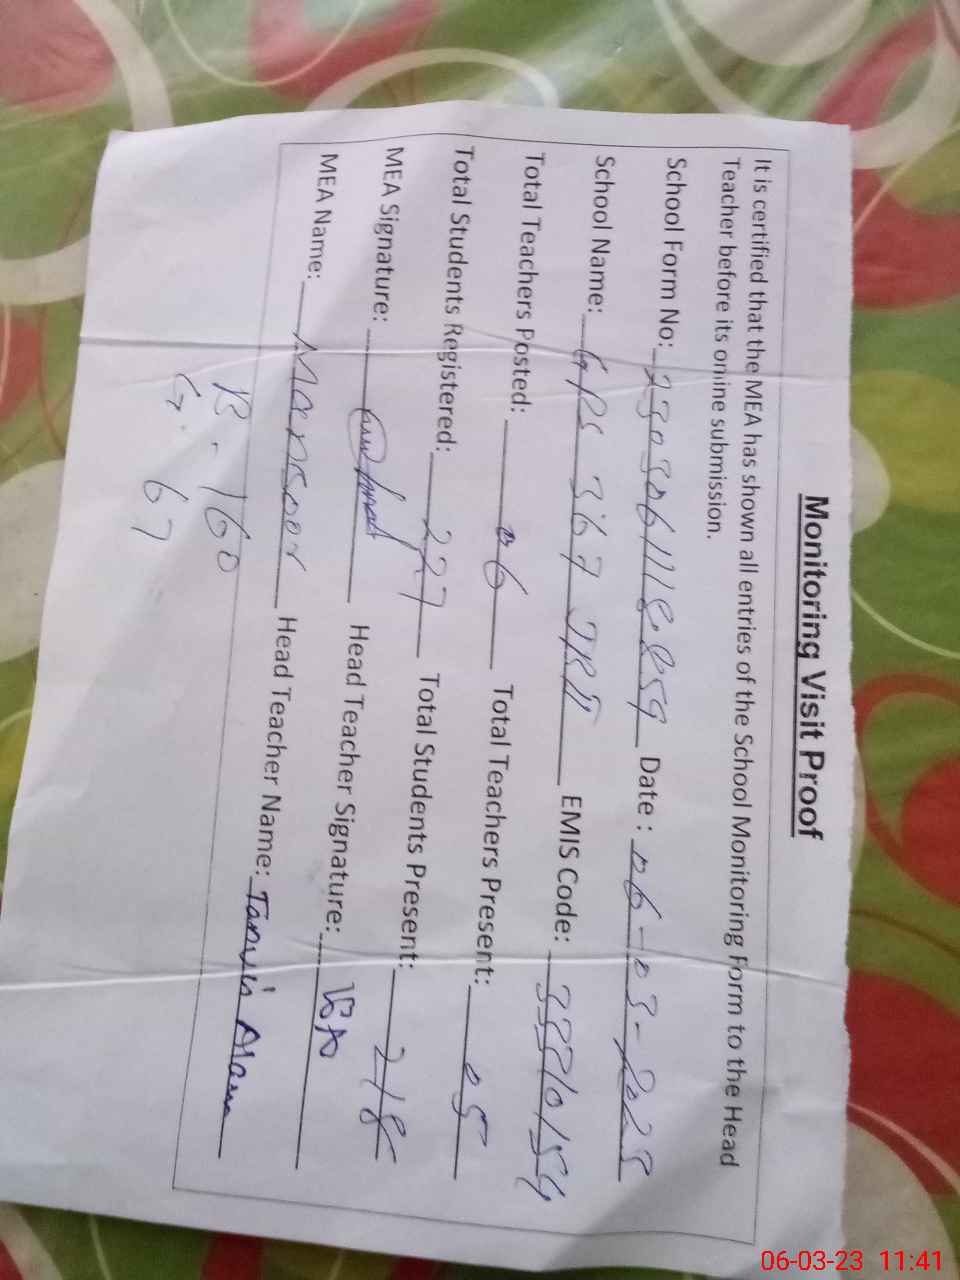 Monitoring Visit Proof
It is certified that the MEA has shown all entries of the School Monitoring Form to the Head
Teacher before its online submission.
School Form No: 2303061118859 Date : 06-03-2023
School Name: GPS 367 JRR EMIS Code: 33210154
Total Teachers Posted: 06 Total Teachers Present: 05
Total Students Registered: 227 Total Students Present: 218
MEA Signature: Head Teacher Signature:
MEA Name: Mansoor Head Teacher Name: Tanvir Alam
B. 160
G. 67
06-03-23 11:41